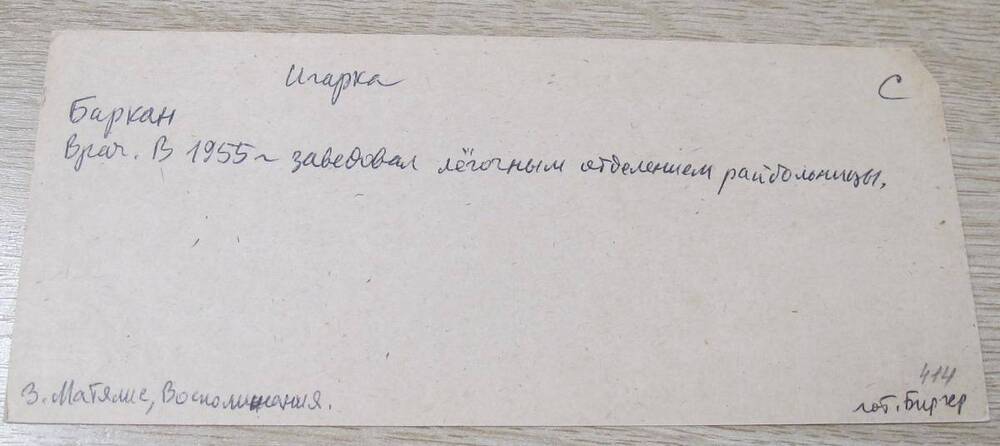 Игарка
С
Баркан
Врач. В 1955 г заведовал лёгочным отделением райбольницы.
З. Матялис, Воспоминания.
414
гот. Биргер